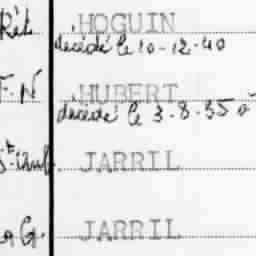 Rét. HOGUIN
décédé le 10-12-40
F.N. HUBERT
décédé le 3-8-35 à
JARRIL
G. JARRIL